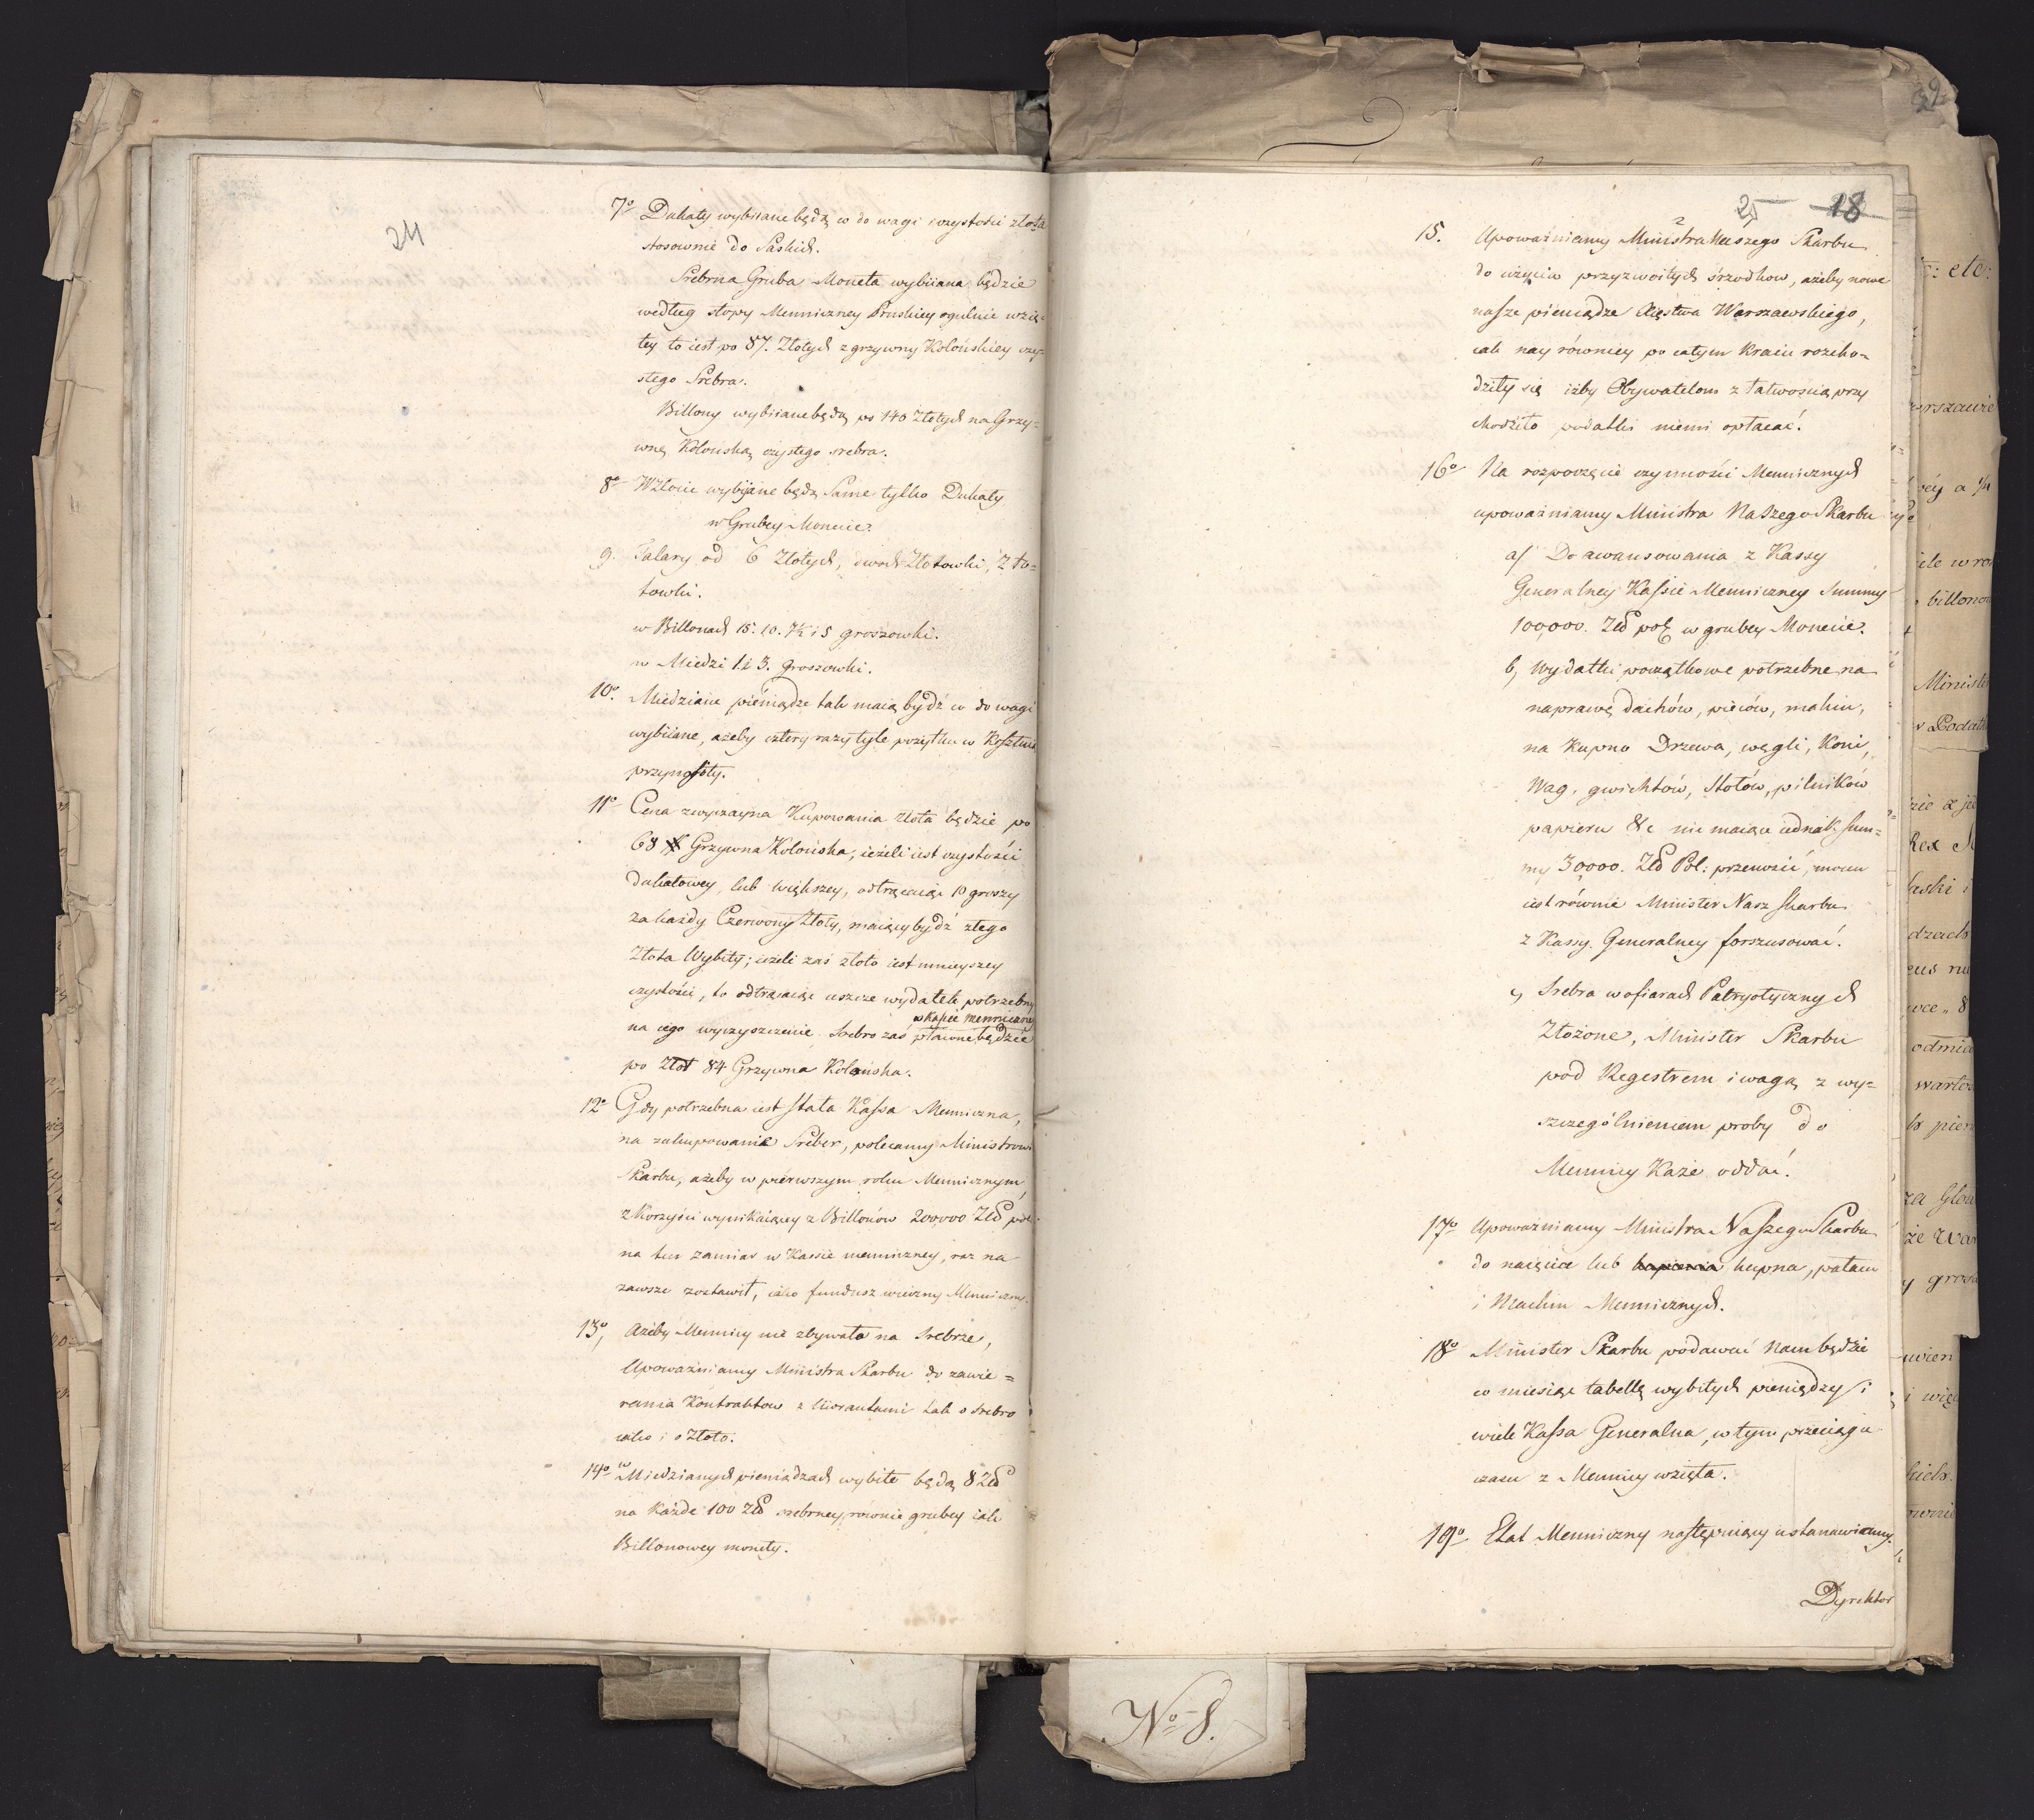 24
7º Dukaty wybiiane będą co do wagi i czystości złota
stosownie do Saskich.
Srebrna Gruba Moneta wybiiana będzie
według stopy Menniczney Pruskiey ogulnie wzię=
tey to iest po 87. Złotych z grzywny Kolońskiey czy=
stego Srebra.
Billony wybiiane będą po 140 Złotych na Grzy=
wnę Kolońską czystego srebra.
8º W Złocie wybijane będą Same tylko Dukaty
w Grubey Monecie.
9. Talary od 6 Złotych, dwoch Złotowki, Zło=
towki.
w Billonach 15. 10. 7½ i 5 groszowki.
w Miedzi 1. i 3. Groszowki.
10º. Miedziane pieniądze tak maią bydź co do wagi
wybiiane, ażeby cztery razy tyle pożytku w Kosztuie
przynosiły.
11º Cena zwyczayna Kupowania złota będzie po
68 # Grzywna Kolońska, ieżeli iest czystości
dukatowey, lub większey, odtrącaiąc 10 groszy
za każdy Czerwony Złoty, maiący bydź z tego
Złota Wybity; ieżeli zaś złoto iest mnieyszey
czystości, to odtrącaiąc ieszcze wydatek potrzebny
w Kassie menniczney
na iego wyczyszczenie. Srebro zaś płacone będzie
po Złot 84 Grzywna Kolońska.
12º Gdy potrzebna iest stała Kassa Menniczna,
na zakupowanie Sreber, polecamy Ministrowi
Skarbu, ażeby w pierwszym roku Mennicznym,
z Korzyści wynikaiącey z Billonów 200,000 Złch pol.
na ten zamiar w Kassie menniczney, raz na
zawsze zostawił, iako fundusz wieczny Menniczny.
13º, Ażeby Mennicy nie zbywało na Srebrze,
Upoważniamy Ministra Skarbu do zawie=
rania Kontraktow z liwrantami tak o srebro
iako i o Złoto.
14º w Miedzianych pieniądzach wybite będą 8 Złch
na każde 100 Złch srebrney, równie grubey iak
Billonowey monety.
32
2
25 18
15. Upoważniamy Ministra Naszego Skarbu
do użycia przyzwoitych śrzodkow, ażeby nowe
nasze pieniądze Xięstwa Warszawskiego,
iak nay równiey po całym Kraiu rozcho=
dziły się iżby Obywatelom z łatwością przy
chodziło podatki niemi opłacać.
16º Na rozpoczęcie czynności Mennicznych
upoważniamy Ministra Naszego Skarbu
a/ Do awansowania z Kassy
Generalney Kassie Menniczney Summy
100,000. Złch pol. w grubey Monecie.
b, Wydatki początkowe potrzebne na
naprawę dachów, pieców, mahin,
na Kupno Drzewa, węgli, Koni,
Wag, gwichtów, Stołów, pilników
papieru &c nie maiące iednak Sum=
my 30000. Złch Pol: przenosić, mocen
iest równie Minister Nasz skarbu
z Kassy Generalney forszusować.
c, Srebra w ofiarach Patryotycznych
Złożone, Minister Skarbu
pod Regestrem i wagą z wy=
szczególnieniem proby do
Mennicy Każe oddać.
17º Upoważniamy Ministra Naszego Skarbu
do naięcia lub kupienia kupna, pałacu
i Machin Mennicznych.
18º Minister Skarbu podawać Nam będzie
co miesiąc tabellę wybitych pieniędzy i
wiele Kassa Generalna, w tym przeciągu
czasu z Mennicy wzięła.
19º Etat Menniczny następuiący ustanawiamy.
Dyrektor
Nº 8.